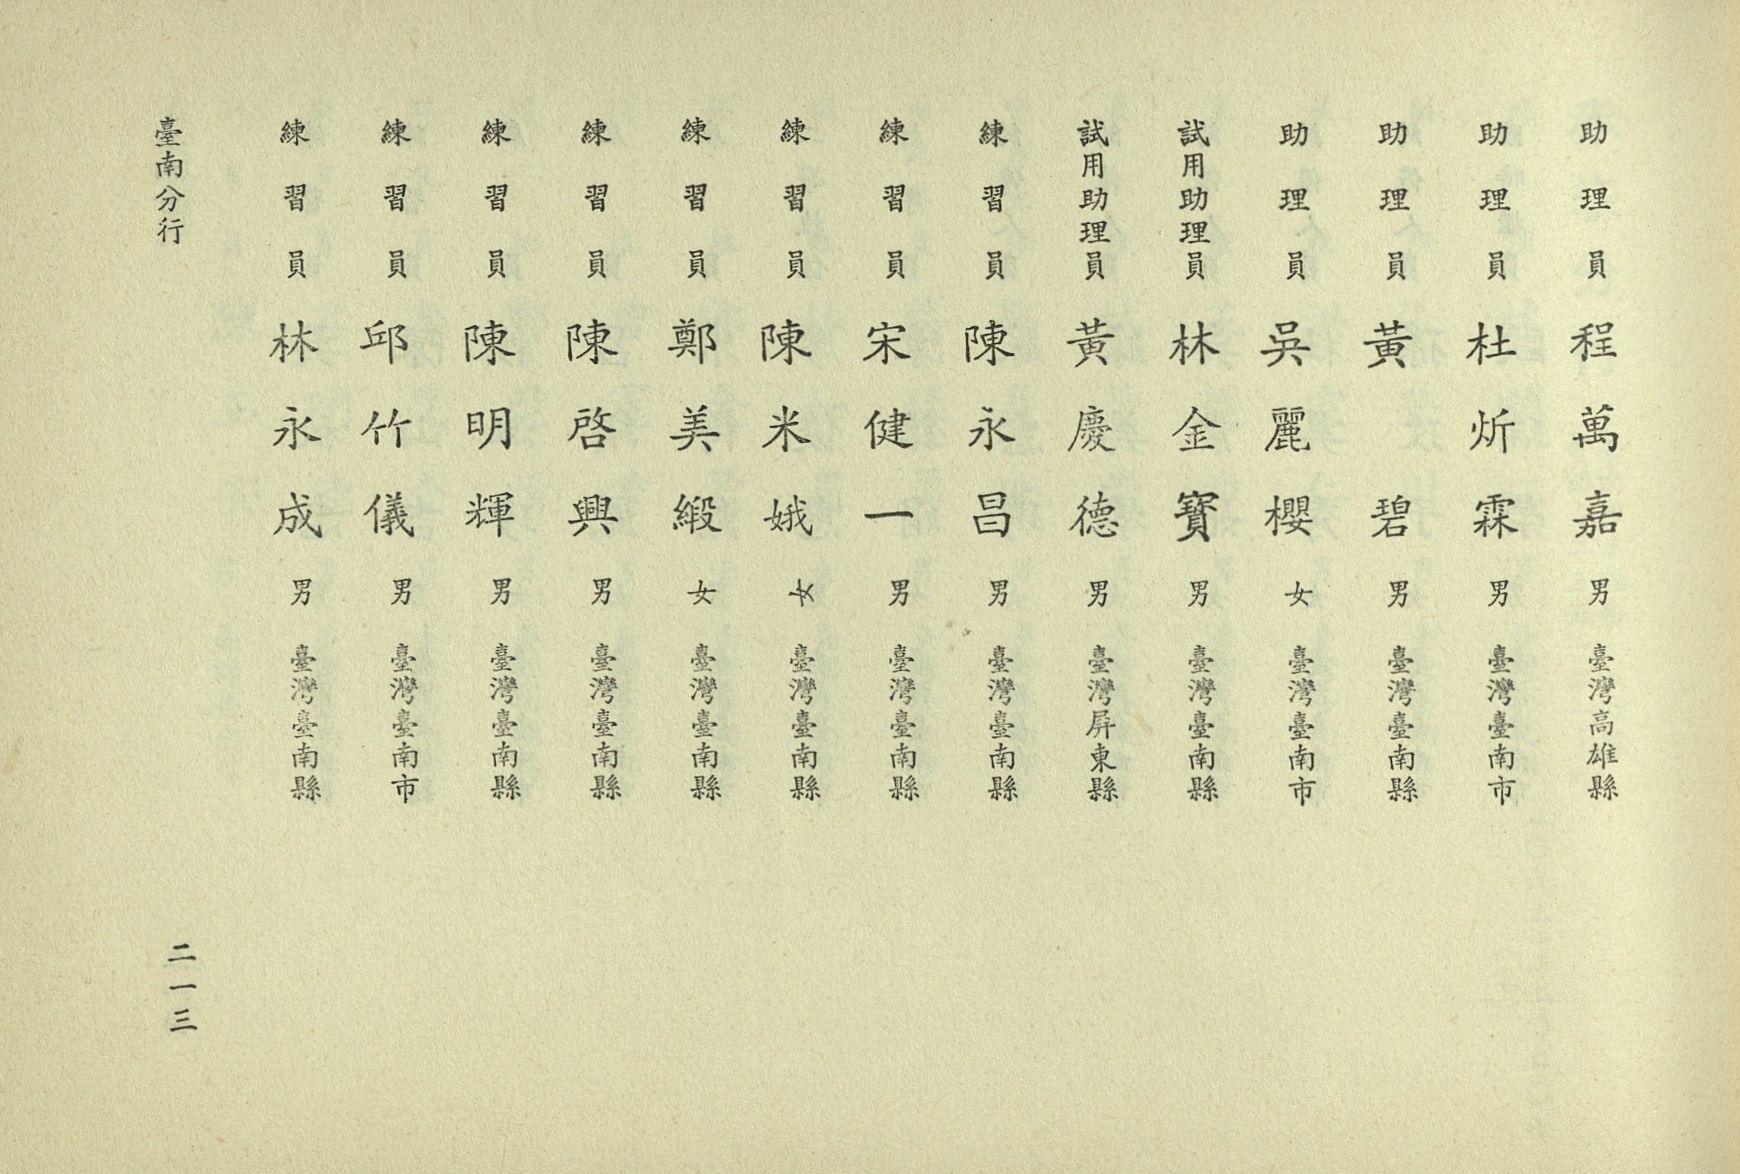 助理員 程萬嘉 男 臺灣高雄縣
助理員 杜炘霖 男 臺灣臺南市
助理員 黃碧 男 臺灣臺南縣
助理員 吳麗櫻 女 臺灣臺南市
試用助理員 林金寶 男 臺灣臺南縣
試用助理員 黃慶德 男 臺灣屏東縣
練習員 陳永昌 男 臺灣臺南縣
練習員 宋健一 男 臺灣臺南縣
練習員 陳米娥 女 臺灣臺南縣
練習員 鄭美緞 女 臺灣臺南縣
練習員 陳啓興 男 臺灣臺南縣
練習員 陳明輝 男 臺灣臺南縣
練習員 邱竹儀 男 臺灣臺南市
練習員 林永成 男 臺灣臺南縣
臺南分行
二一三